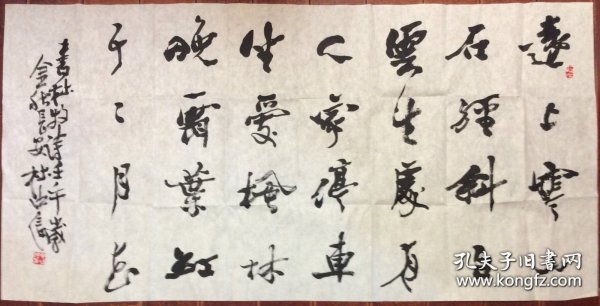 遠上寒山
石徑斜白
雲生處有
人家停車
坐愛楓林
晚霜葉紅
于二月花
書杜牧詩壬午歲
金秋長安杜
孔夫子旧书网
www.kongfz.com